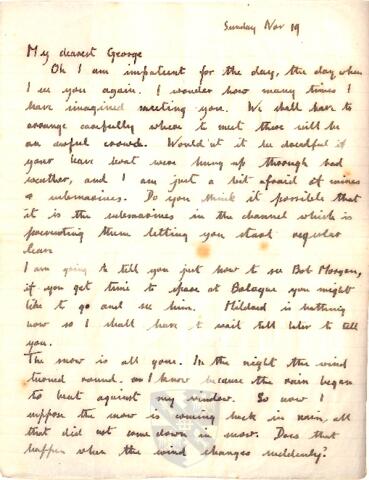 Sunday Nov 19
My dearest George
Oh I am impatient for the day, the day when
I see you again. I wonder how many times I
have imagined meeting you. We shall have to
arrange carefully where to meet there will be
an awful crowd. Would'nt it be dreadful if
your leave boat were hung up through bad
weather, and I am just a bit afraid of mines
& submarines. Do you think it possible that
it is the submarines in the channel which is
preventing them letting you start regular
leave
I am going to tell you just how to see Bob Morgan,
if you get time to spare at Bologne you might
like to go and see him. Mildred is bathing
now so I shall have to wait till later to tell
you.
The snow is all gone. In the night the wind
turned round, as I know because the rain began
to beat against my window. So now I
suppose the snow is coming back in rain, all
that did not come down in snow. Does that
happen when the wind changes suddenly?